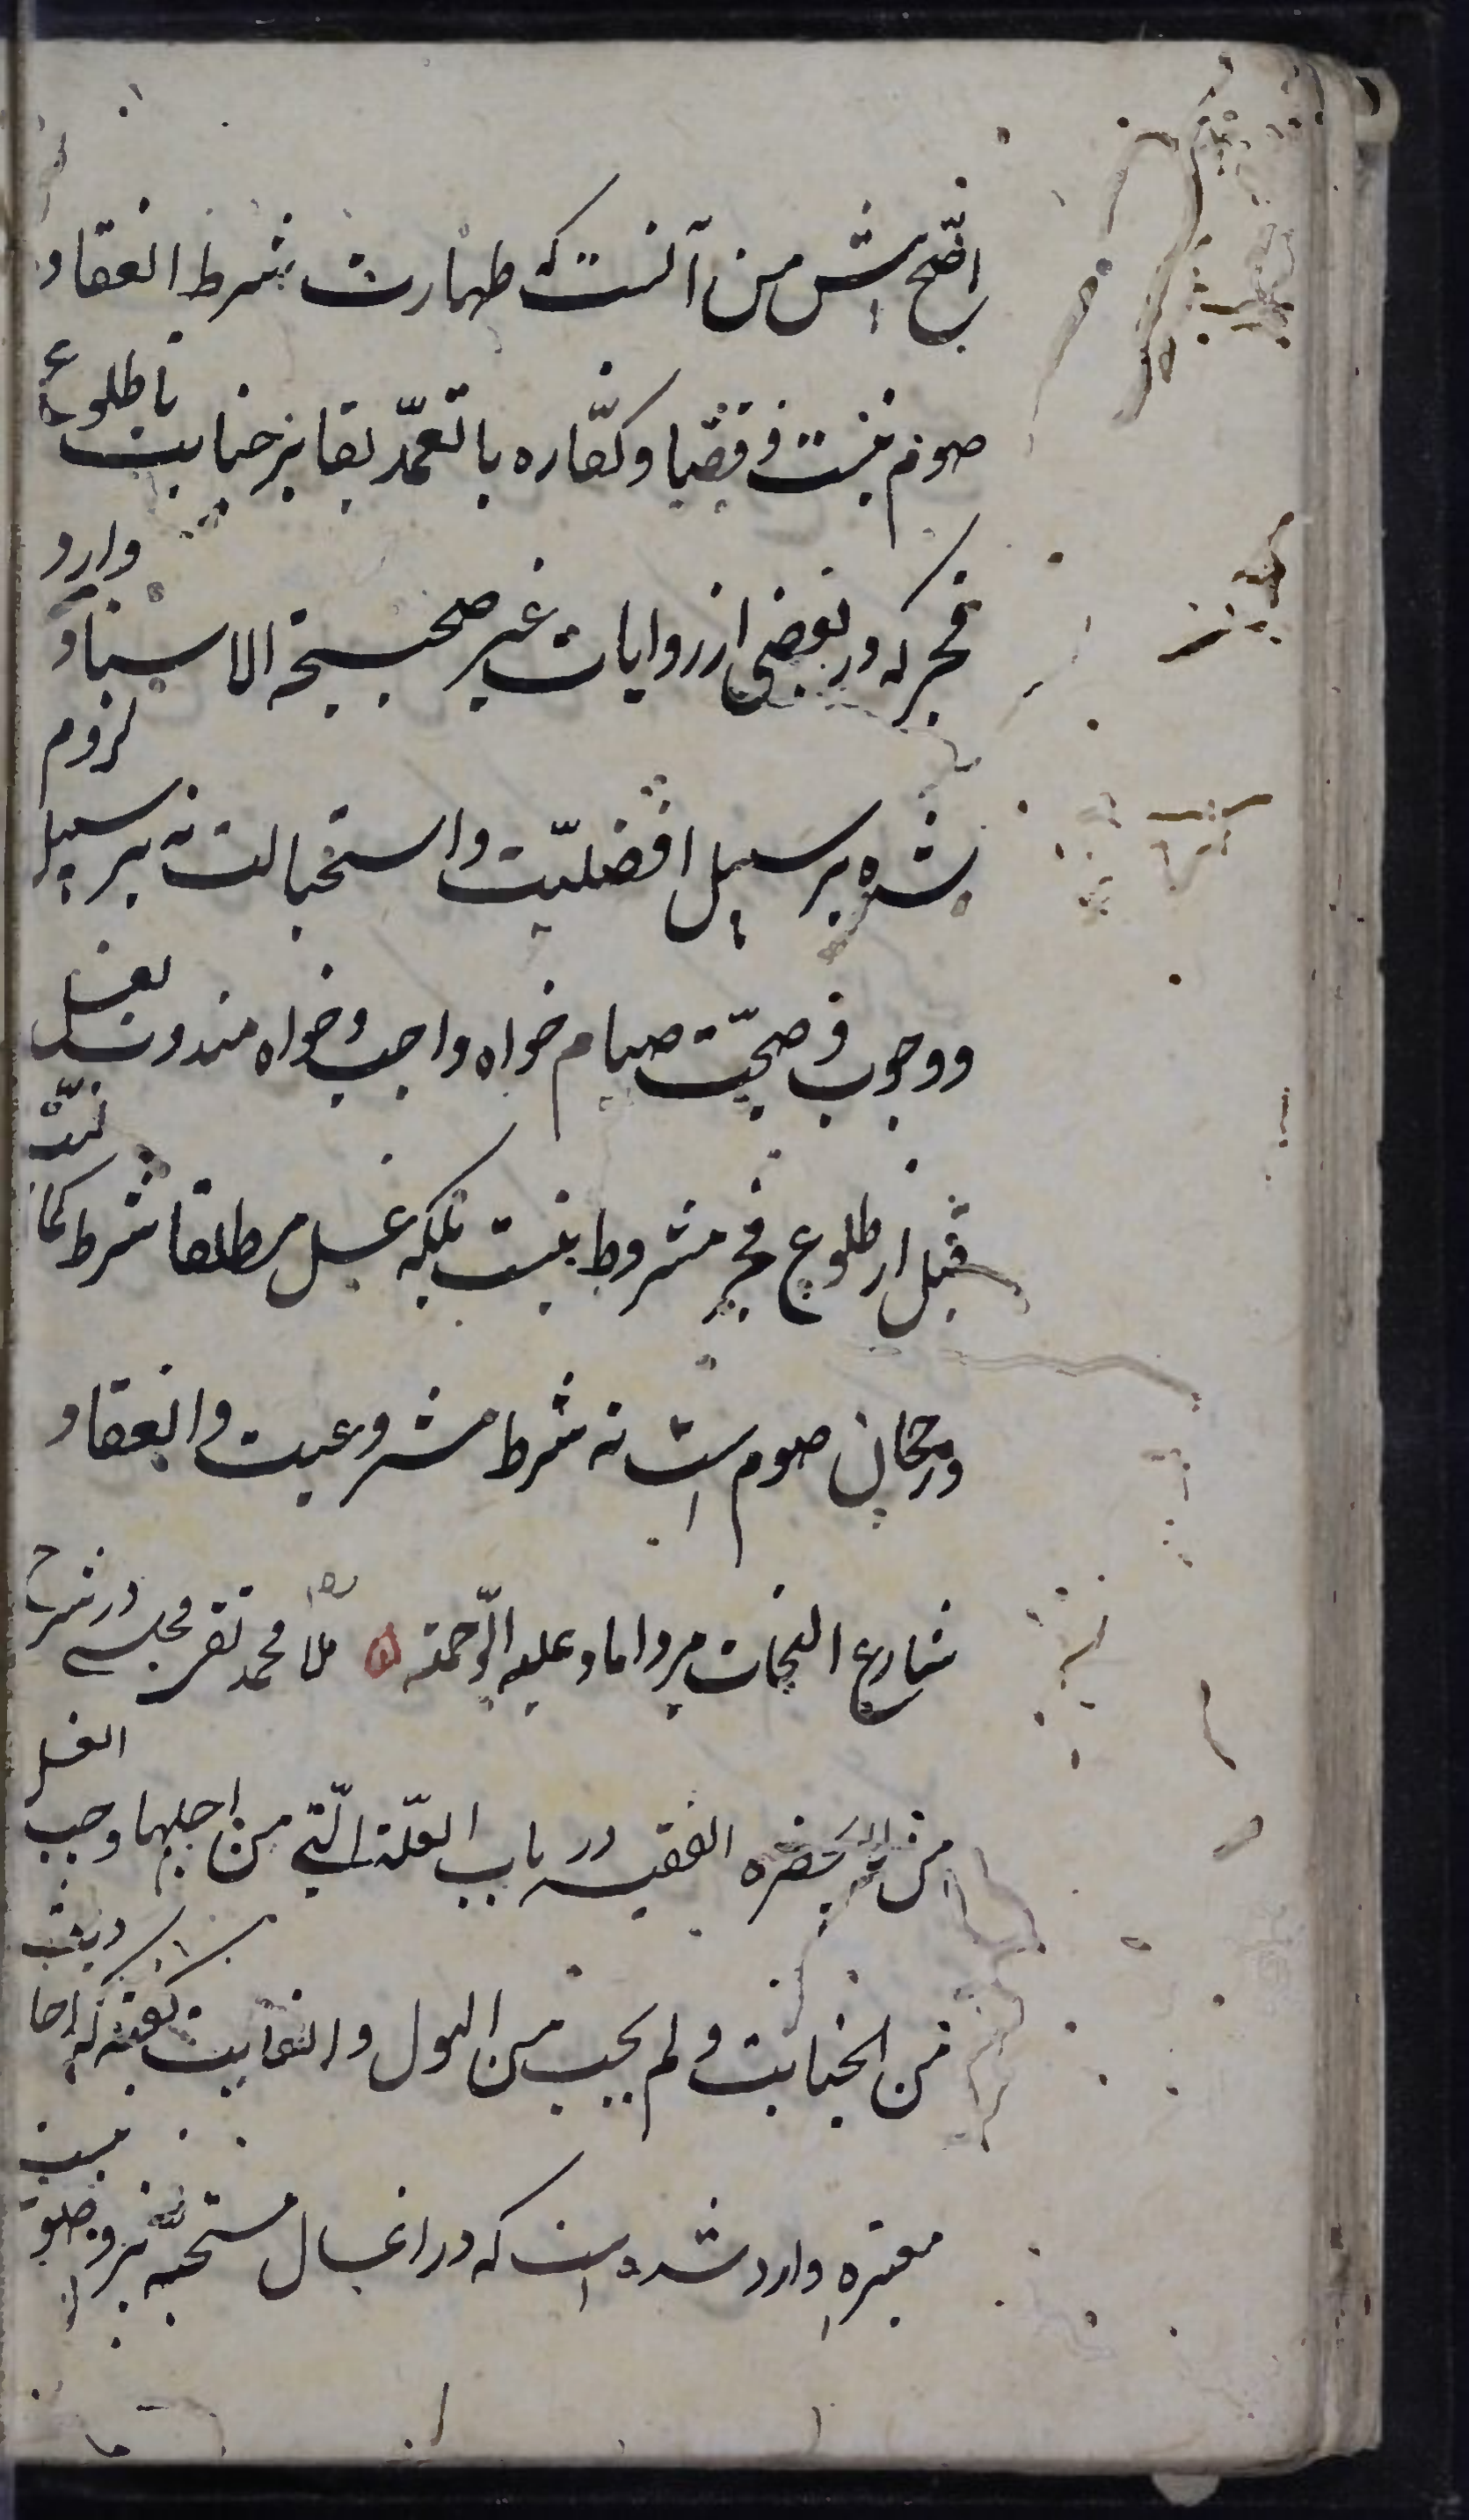 اصح پیش من آنست که طهارت شرط انعقاد
صوم نیست و قضا و کفّاره با تعمّد بقا بر جنابت تا طلوع
فجر که در بعضی از روایات غیر صحیحة الاسناد وارد
شده بر سبیل افضلیّت و استحبابست نه بر سبیل لزوم
و وجوب و صحّت صیام خواه واجب و خواه مندوب بغسل
قبل از طلوع فجر مشروط نیست بلکه غسل مطلقا شرط کمالیّت
و رجحان صوم است نه شرط مشروعیت و انعقاد
شارع النجات میرداماد علیه الرّحمة ملا محمد تقی مجلسی در شرح
من لا یحضره الفقیه در باب العلّة الّتی من اجلها وجب الغسل
من الجنابت و لم یجب من البول و الغایت گفته که احادیث
معتبره وارد شده است که در اغسال مستحبّه نیز وضو نیست